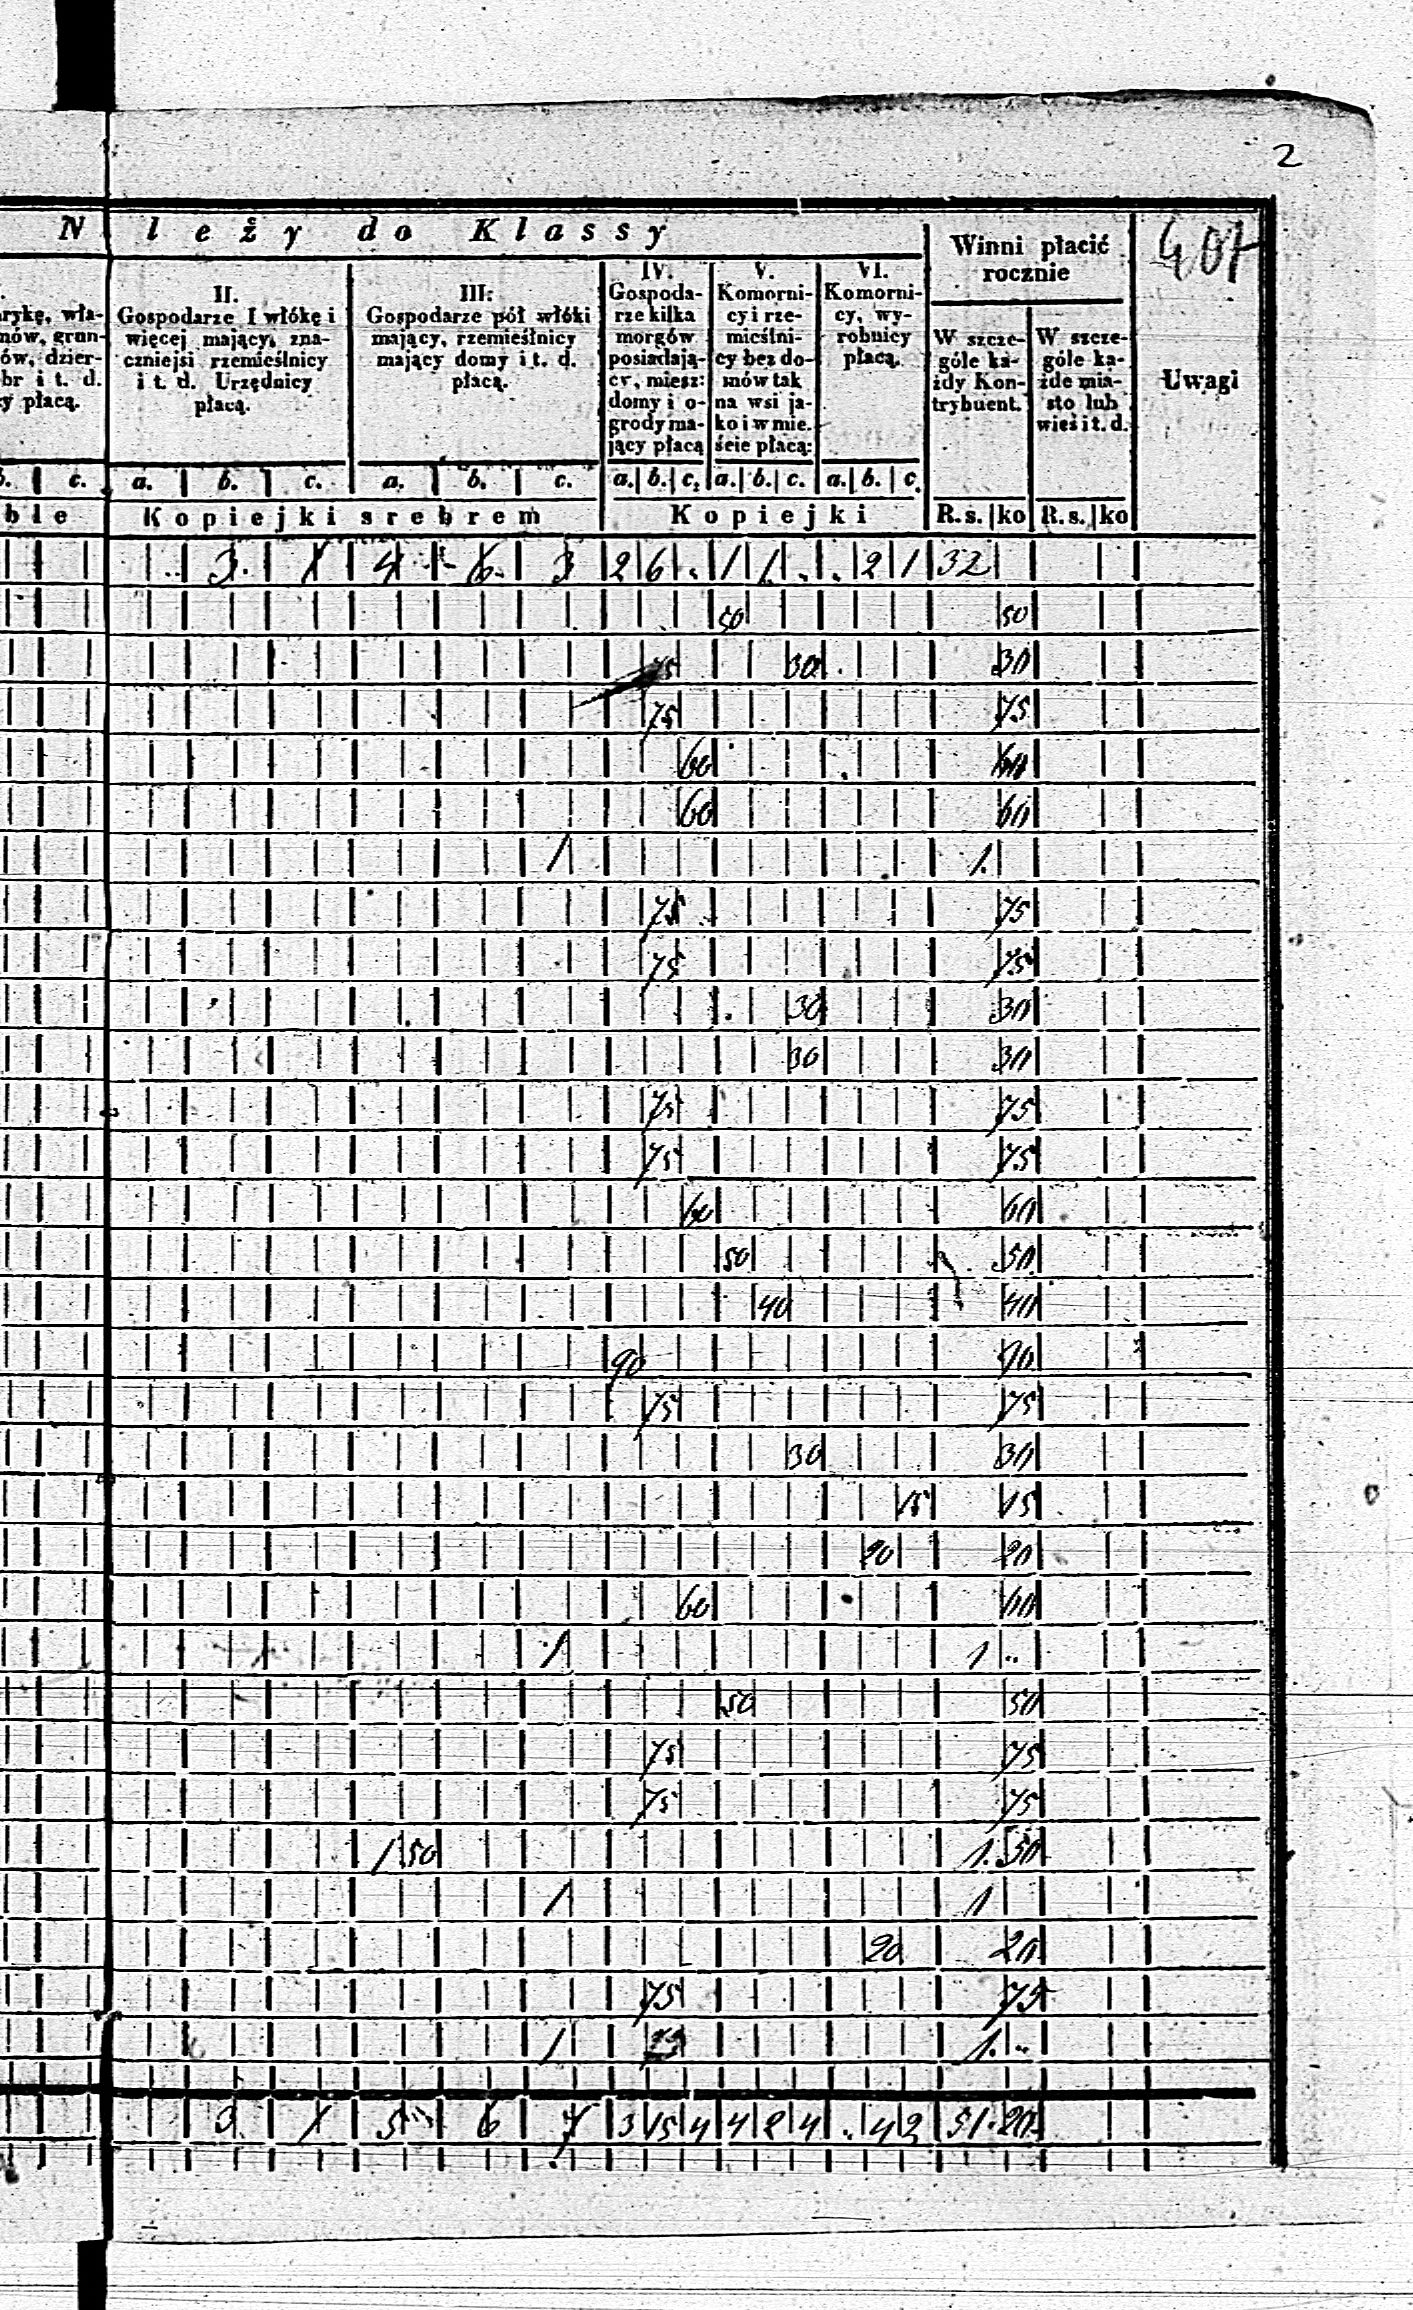 2
N leży do Klassy
Winni płacić rocznie
407
rykę, wła-
nów, grun-
ów, dzier-
br i t. d.
y płacą.
II.
Gospodarze 1 włókę i
więcej mający, zna-
czniejsi rzemieślnicy
i t. d. Urzędnicy
płacą.
III.
Gospodarze pół włóki
mający, rzemieślnicy
mający domy i t. d.
płacą.
IV.
Gospoda-
rze kilka
morgów
posiadają-
cy, miesz:
domy i o-
grody ma-
jący płacą
V.
Komorni-
cy i rze-
mieślni-
cy bez do-
mów tak
na wsi ja-
ko i w mie.
ście płacą:
VI.
Komorni-
cy, wy-
robnicy
płacą.
W szcze-
góle ka-
żdy Kon-
trybuent.
W szcze-
góle ka-
żde mia-
sto lub
wieś i t. d.
Uwagi
b. c. a. b. c. a. b. c. a. b. c. a. b. c. a. b. c.
ble Kopiejki srebrem Kopiejki R. s. ko R. s. ko
3 1 4 6 3 2 6 . 1 1 . . 2 1 32
50 50
75 30 30
75 75
60 60
60 60
1 1.
75 75
75 75
30 30
30 30
75 75
75 75
60 60
50 50
40 40
90 90
75 75
30 30
15 15
20 20
60 60
1 1 ..
50 50
75 75
75 75
1 50 1. 50
1 1
20 20
75 75
1 1. ..
3 1 5 6 7 3 15 4 4 2 4 . 4 2 51. 20